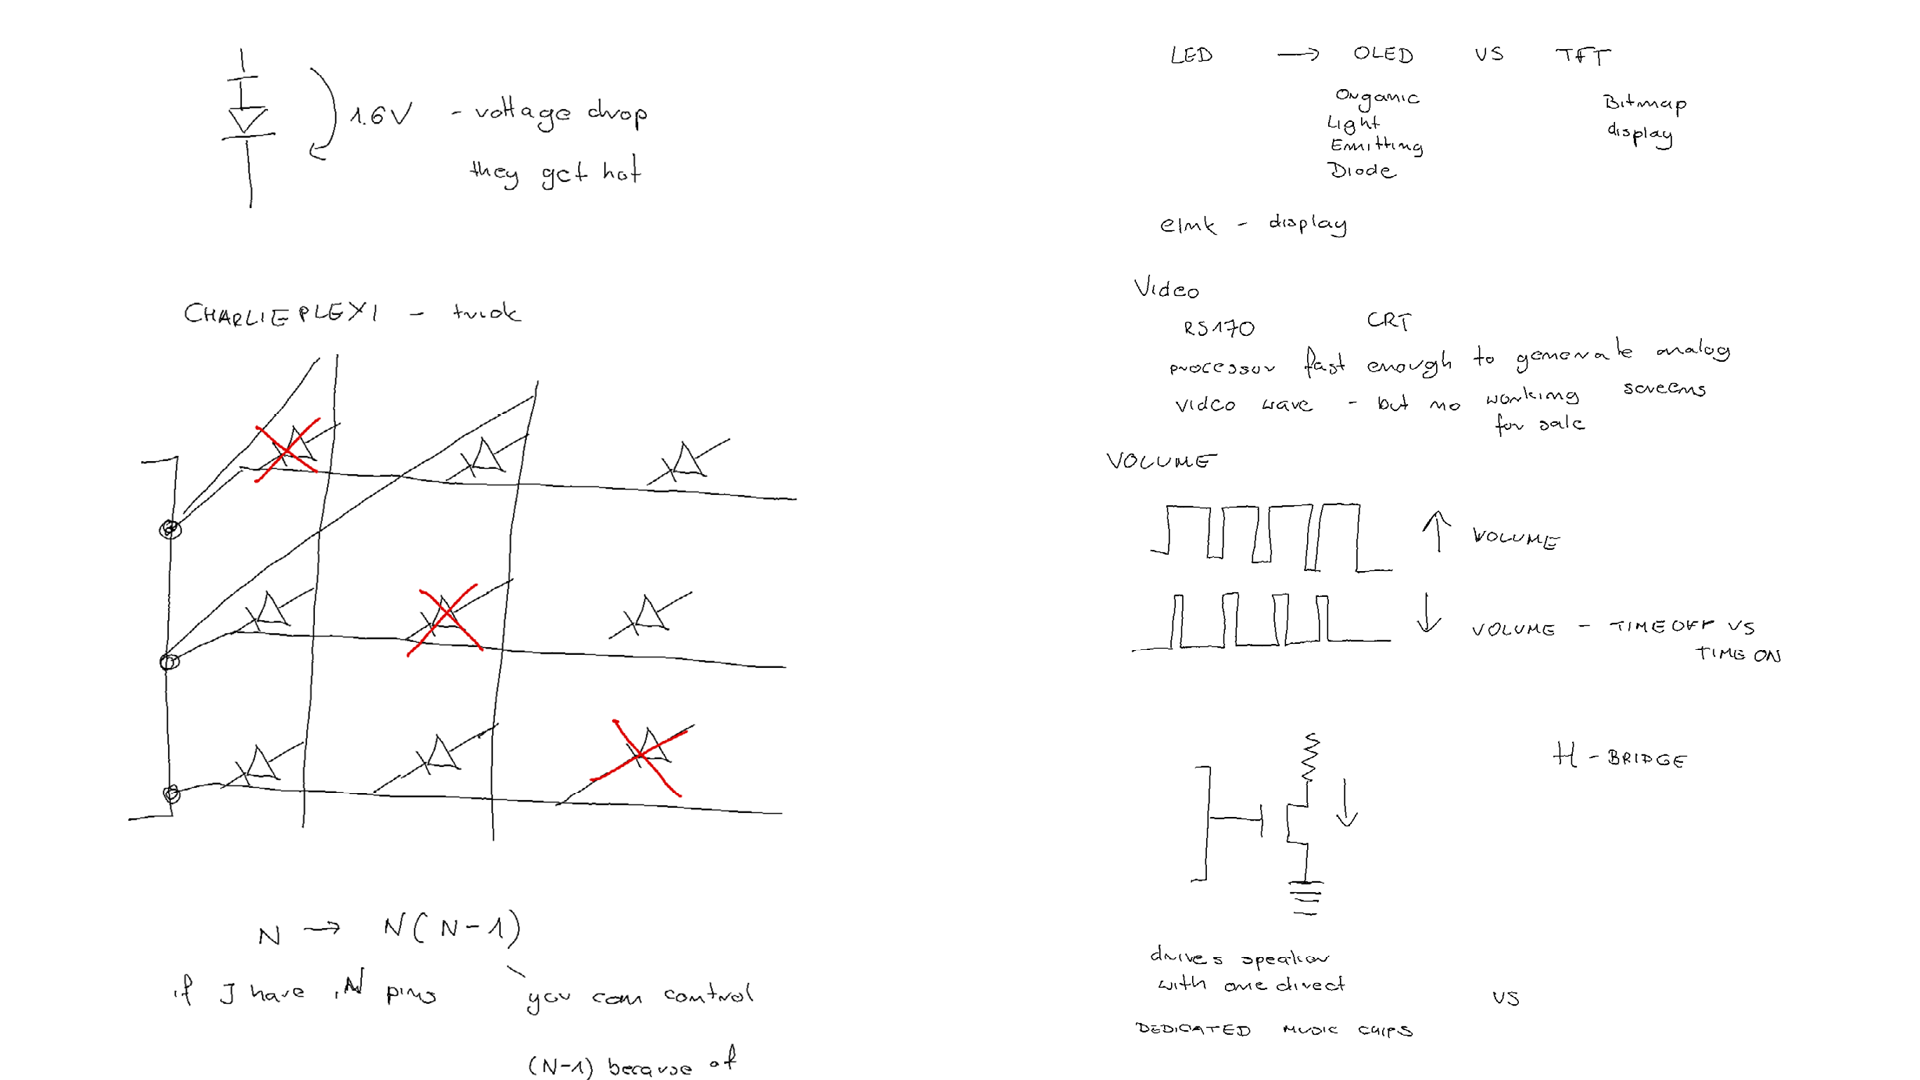 1.6V - voltage drop
they get hot
CHARLIEPLEXI - trick
N → N(N-1)
if I have N pins
you can control
(N-1) because of
LED → OLED VS TFT
Organic
Light
Emitting
Diode
Bitmap
display
eInk - display
Video
RS170
CRT
processor fast enough to generate analog
video wave - but no working screens
for sale
VOLUME
↑ VOLUME
↓ VOLUME - TIME OFF VS
TIME ON
H - BRIDGE
drives speaker
with one direct
VS
DEDICATED MUSIC CHIPS